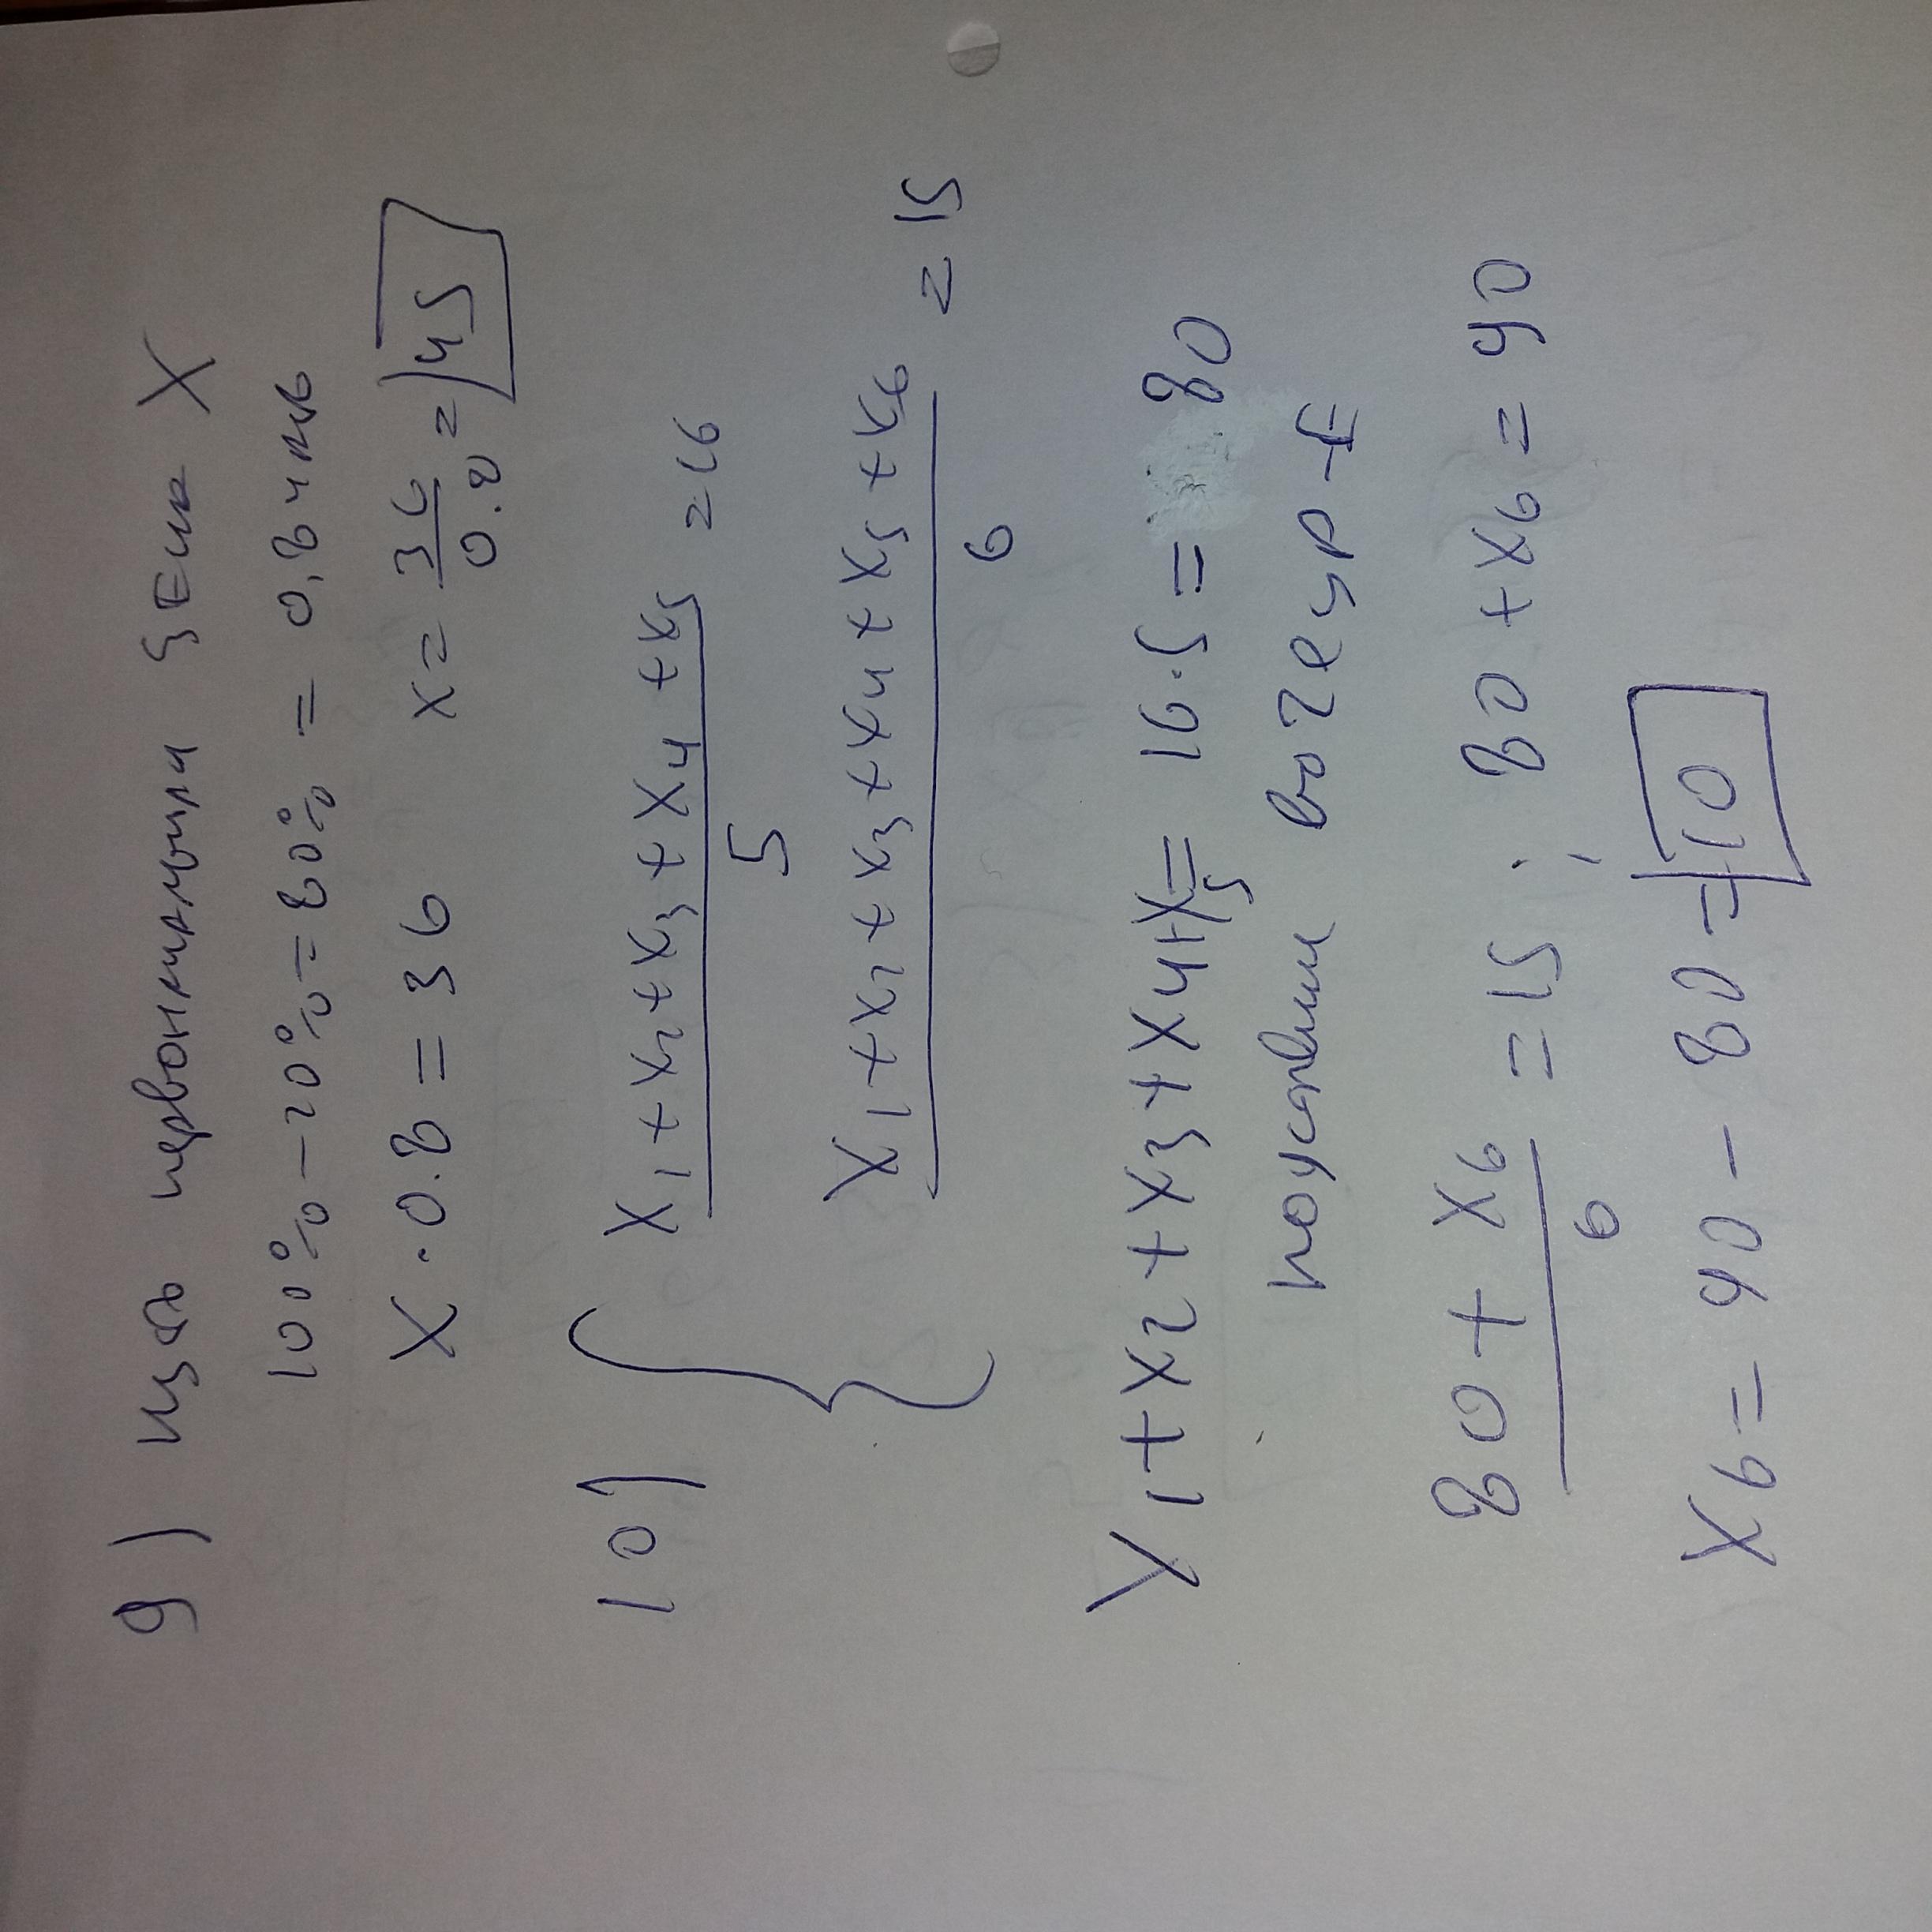 9) изн первоначальная цена X
100% - 20% = 80% = 0,8 или
X · 0.8 = 36 x = 36/0.8 = 45
10) { (x1 + x2 + x3 + x4 + x5)/5 = 16
(x1 + x2 + x3 + x4 + x5 + x6)/6 = 15
x1 + x2 + x3 + x4 + x5 = 16·5 = 80
поставим во 2
(80 + x6)/6 = 15 ; 80 + x6 = 90
x6 = 90 - 80 = 10